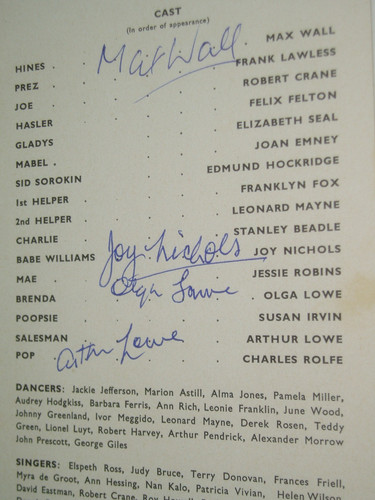 CAST
(In order of appearance)
HINES . . . . MAX WALL
Max Wall
PREZ . . . . FRANK LAWLESS
JOE . . . . ROBERT CRANE
HASLER . . . . FELIX FELTON
GLADYS . . . . ELIZABETH SEAL
MABEL . . . . JOAN EMNEY
SID SOROKIN . . . EDMUND HOCKRIDGE
1st HELPER . . . . FRANKLYN FOX
2nd HELPER . . . . LEONARD MAYNE
CHARLIE . . . . STANLEY BEADLE
BABE WILLIAMS . . . JOY NICHOLS
Joy Nichols
MAE . . . . JESSIE ROBINS
BRENDA . . . . OLGA LOWE
Olga Lowe
POOPSIE . . . . SUSAN IRVIN
SALESMAN . . . . ARTHUR LOWE
Arthur Lowe
POP . . . . CHARLES ROLFE
DANCERS: Jackie Jefferson, Marion Astill, Alma Jones, Pamela Miller,
Audrey Hodgkiss, Barbara Ferris, Ann Rich, Leonie Franklin, June Wood,
Johnny Greenland, Ivor Meggido, Leonard Mayne, Derek Rosen, Teddy
Green, Lionel Luyt, Robert Harvey, Arthur Pendrick, Alexander Morrow
John Prescott, George Giles
SINGERS: Elspeth Ross, Judy Bruce, Terry Donovan, Frances Friell,
Myra de Groot, Ann Hessing, Nan Kalo, Patricia Vivian, Helen Wilson,
David Eastman, Robert Crane, Roy